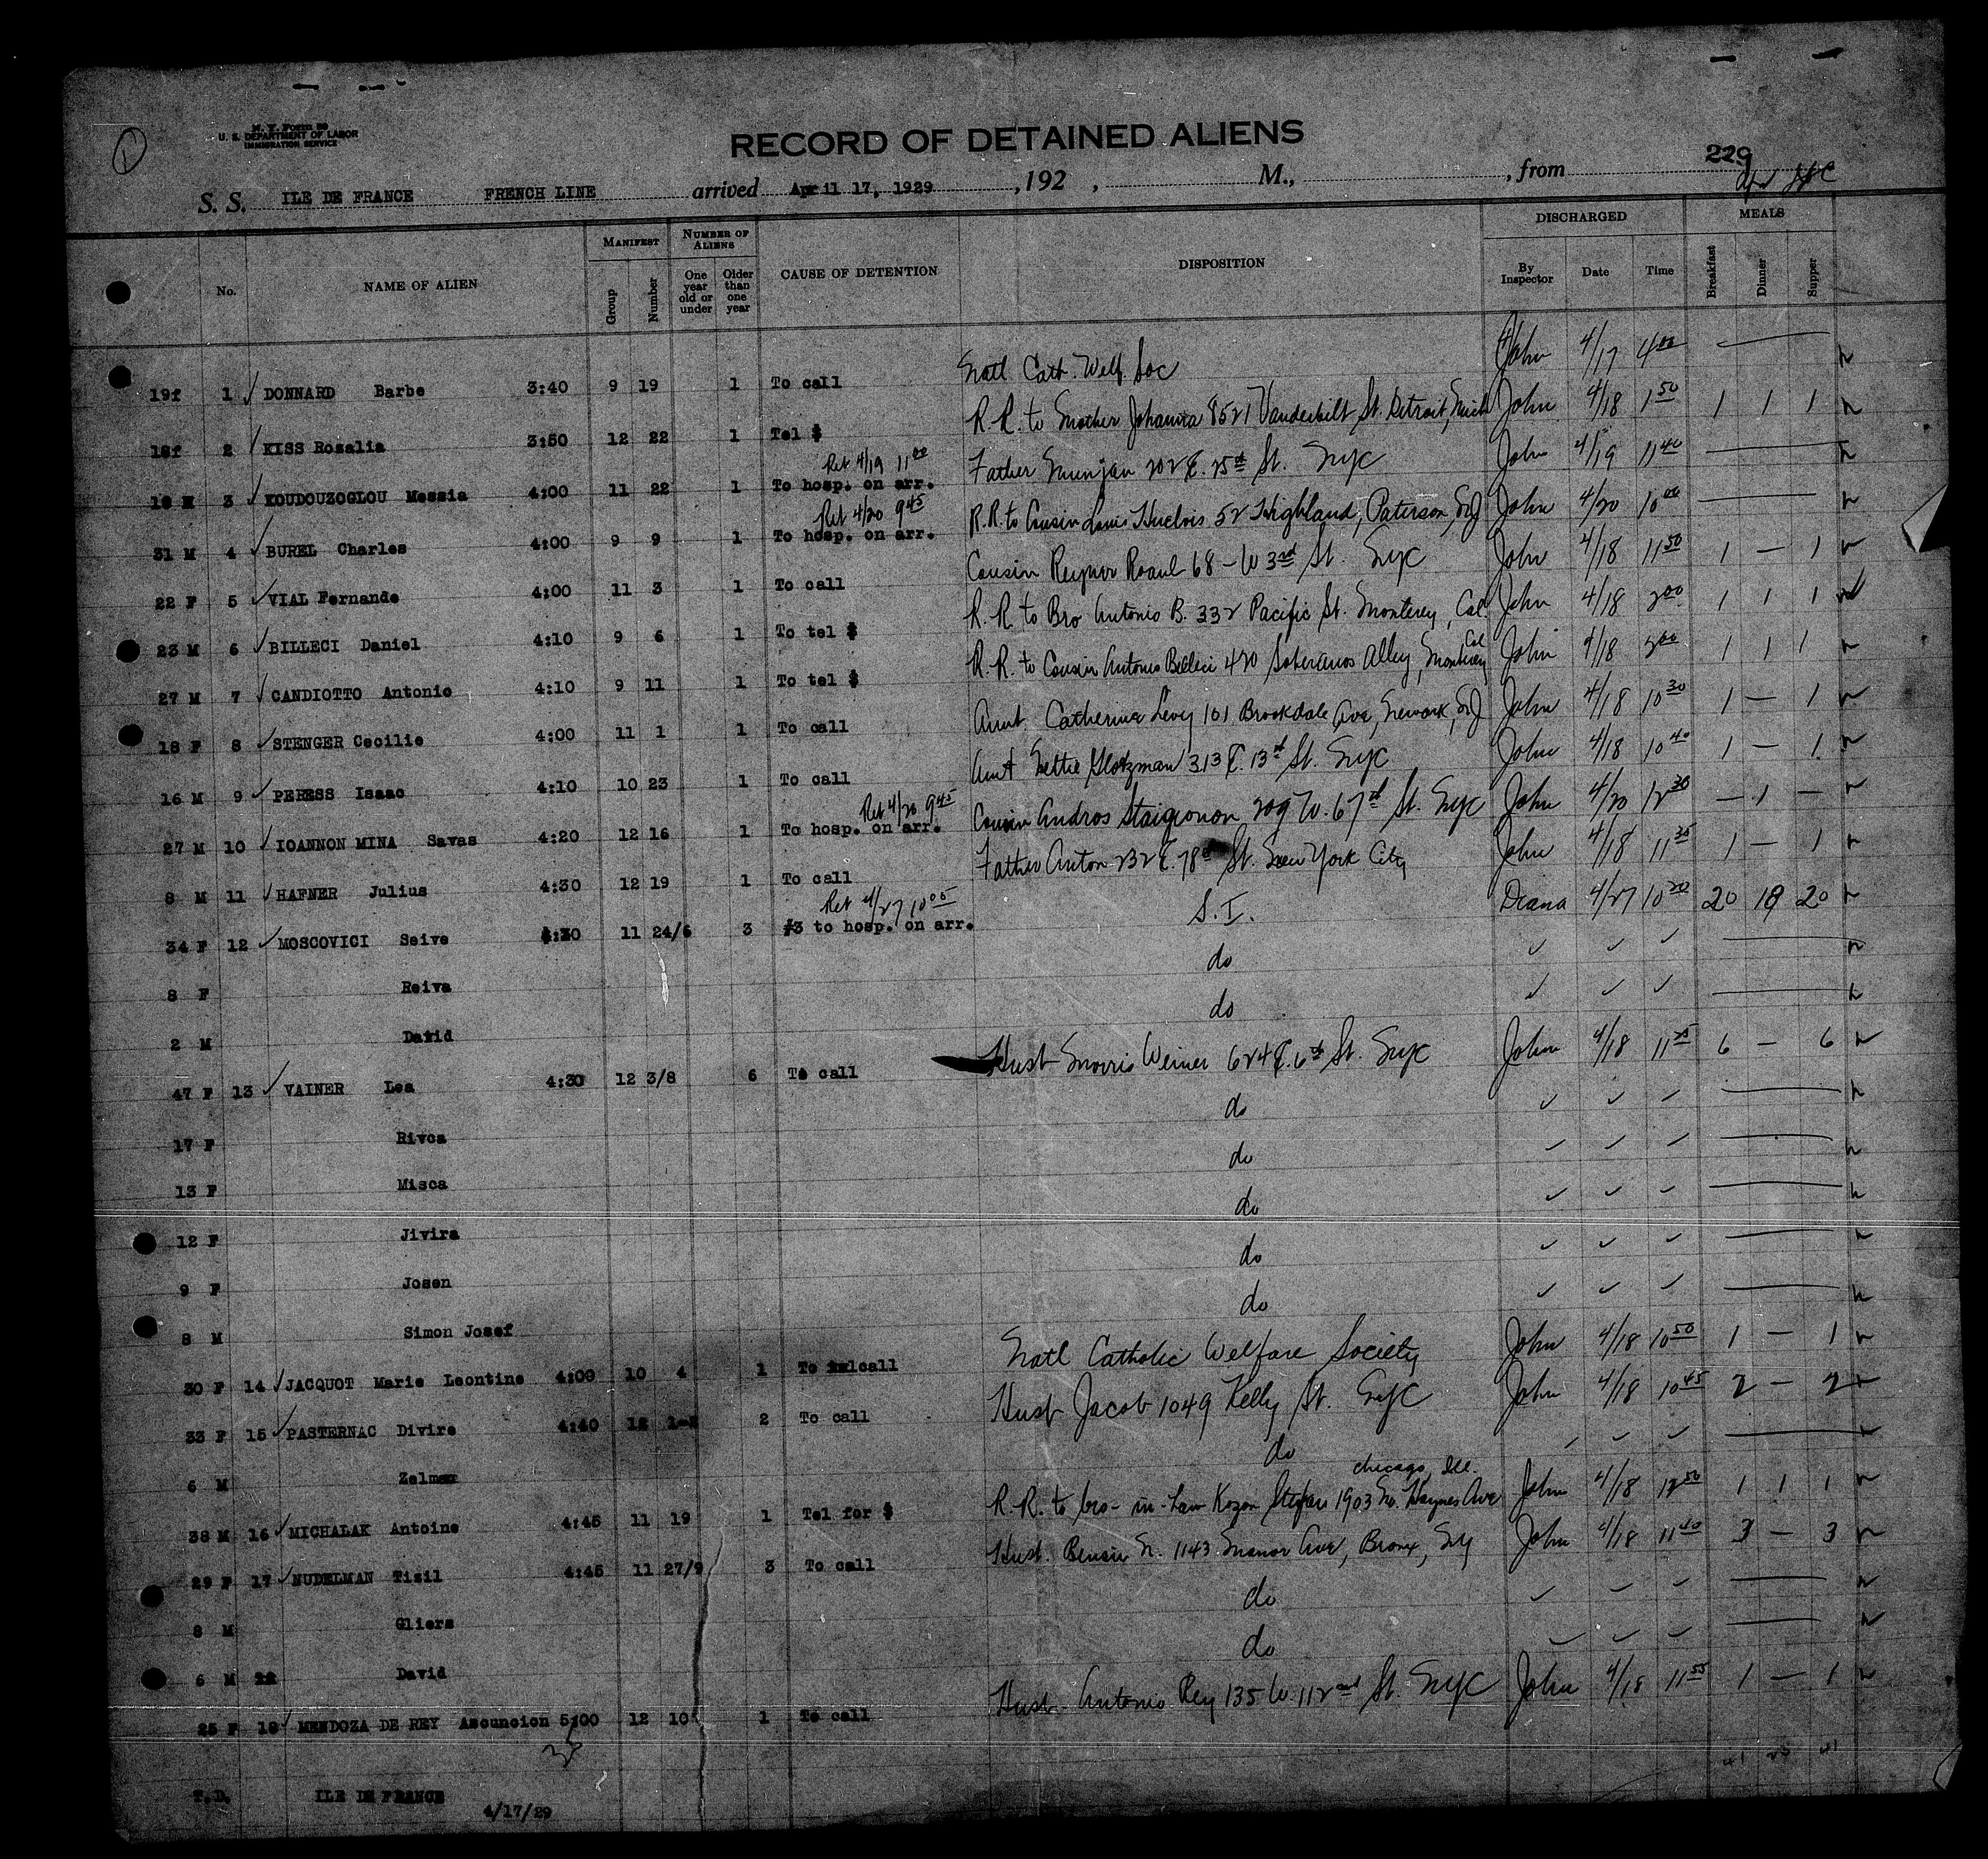 N. Y. Form 99
U. S. DEPARTMENT OF LABOR
IMMIGRATION SERVICE
RECORD OF DETAINED ALIENS
229
S. S. ILE DE FRANCE FRENCH LINE arrived April 17, 1929 , 192 , M., , from
No. NAME OF ALIEN MANIFEST Group Number NUMBER OF ALIENS One year old or under Older than one year CAUSE OF DETENTION DISPOSITION DISCHARGED By Inspector Date Time MEALS Breakfast Dinner Supper
19f 1 ✓ DONNARD Barbe 3:40 9 19 1 To call Natl Cath. Welf. Soc John 4/17 4 00 —
18f 2 ✓ KISS Rosalia 3:50 12 22 1 Tel $ R.R. to Mother Johanna 8521 Vanderbilt St. Detroit, Mich John 4/18 1 50 1 1 1
Ret 4/19 11 00
18 M 3 ✓ KOUDOUZOGLOU Messia 4:00 11 22 1 To hosp. on arr. Father 202 E. 25th St. NYC John 4/19 11 40 —
Ret 4/20 9 45
31 M 4 ✓ BUREL Charles 4:00 9 9 1 To hosp. on arr. R.R. to Cousin Louis 52 Highland, Paterson, NJ John 4/20 10 00 —
22 F 5 ✓ VIAL Fernande 4:00 11 3 1 To call Cousin 68 - W 3rd St. NYC John 4/18 11 50 1 — 1
23 M 6 ✓ BILLECI Daniel 4:10 9 6 1 To tel $ R.R. to Bro Antonio B. 332 Pacific St. Monterey, Cal. John 4/18 2 00 1 1 1
27 M 7 ✓ CANDIOTTO Antonio 4:10 9 11 1 To tel $ R.R. to Cousin Antonio Billeci 420 Alley, Monterey Cal John 4/18 2 00 1 1 1
18 F 8 ✓ STENGER Cecilie 4:00 11 1 1 To call Aunt Catherine Levy 101 Brookdale Ave, Newark, NJ John 4/18 10 30 1 — 1
16 M 9 ✓ PERESS Isaac 4:10 10 23 1 To call Aunt Nettie 313 E. 13th St. NYC John 4/18 10 40 1 — 1
Ret 4/20 9 45
27 M 10 ✓ IOANNON MINA Savas 4:20 12 16 1 To hosp. on arr. Cousin Andros 209 W. 67th St. NYC John 4/20 12 30 — 1 —
8 M 11 ✓ HAFNER Julius 4:30 12 19 1 To call Father Anton 232 E. 78th St. New York City John 4/18 11 35 1 — 1
Ret 4/27 10 05
34 F 12 ✓ MOSCOVICI Seive 4:30 11 24/6 3 #3 to hosp. on arr. S.I. Diana 4/27 10 20 20 19 20
8 F Reiva do ✓ ✓ ✓ —
2 M David do ✓ ✓ ✓ —
47 F 13 ✓ VAINER Lea 4:30 12 3/8 6 To call Husb Morris Weiner 624 E. 6th St. NYC John 4/18 11 25 6 — 6
17 F Rivca do ✓ ✓ ✓ —
13 F Misca do ✓ ✓ ✓ —
12 F Jivira do ✓ ✓ ✓ —
9 F Josen do ✓ ✓ ✓ —
8 M Simon Josef do ✓ ✓ ✓ —
30 F 14 ✓ JACQUOT Marie Leontine 4:00 10 4 1 To call Natl Catholic Welfare Society John 4/18 10 50 1 — 1
33 F 15 ✓ PASTERNAC Divire 4:40 12 1-2 2 To call Husb Jacob 1049 Kelly St. NYC John 4/18 10 45 2 — 2
6 M Zelman do ✓ ✓ ✓ —
Chicago, Ill.
38 M 16 ✓ MICHALAK Antoine 4:45 11 19 1 Tel for $ R.R. to bro-in-law Kozon Stefan 1903 No. Haynes Ave John 4/18 12 50 1 1 1
29 F 17 ✓ NUDELMAN Tisil 4:45 11 27/9 3 To call Husb. N. 1143 Manor Ave, Bronx, NY John 4/18 11 40 3 — 3
8 M Gliers do ✓ ✓ ✓ —
6 M David do ✓ ✓ ✓ —
25 F 18 ✓ MENDOZA DE REY Ascuncion 5:00 12 10 1 To call Husb Antonio Rey 135 W. 112nd St. NYC John 4/18 11 55 1 — 1
T.D. ILE DE FRANCE
4/17/29